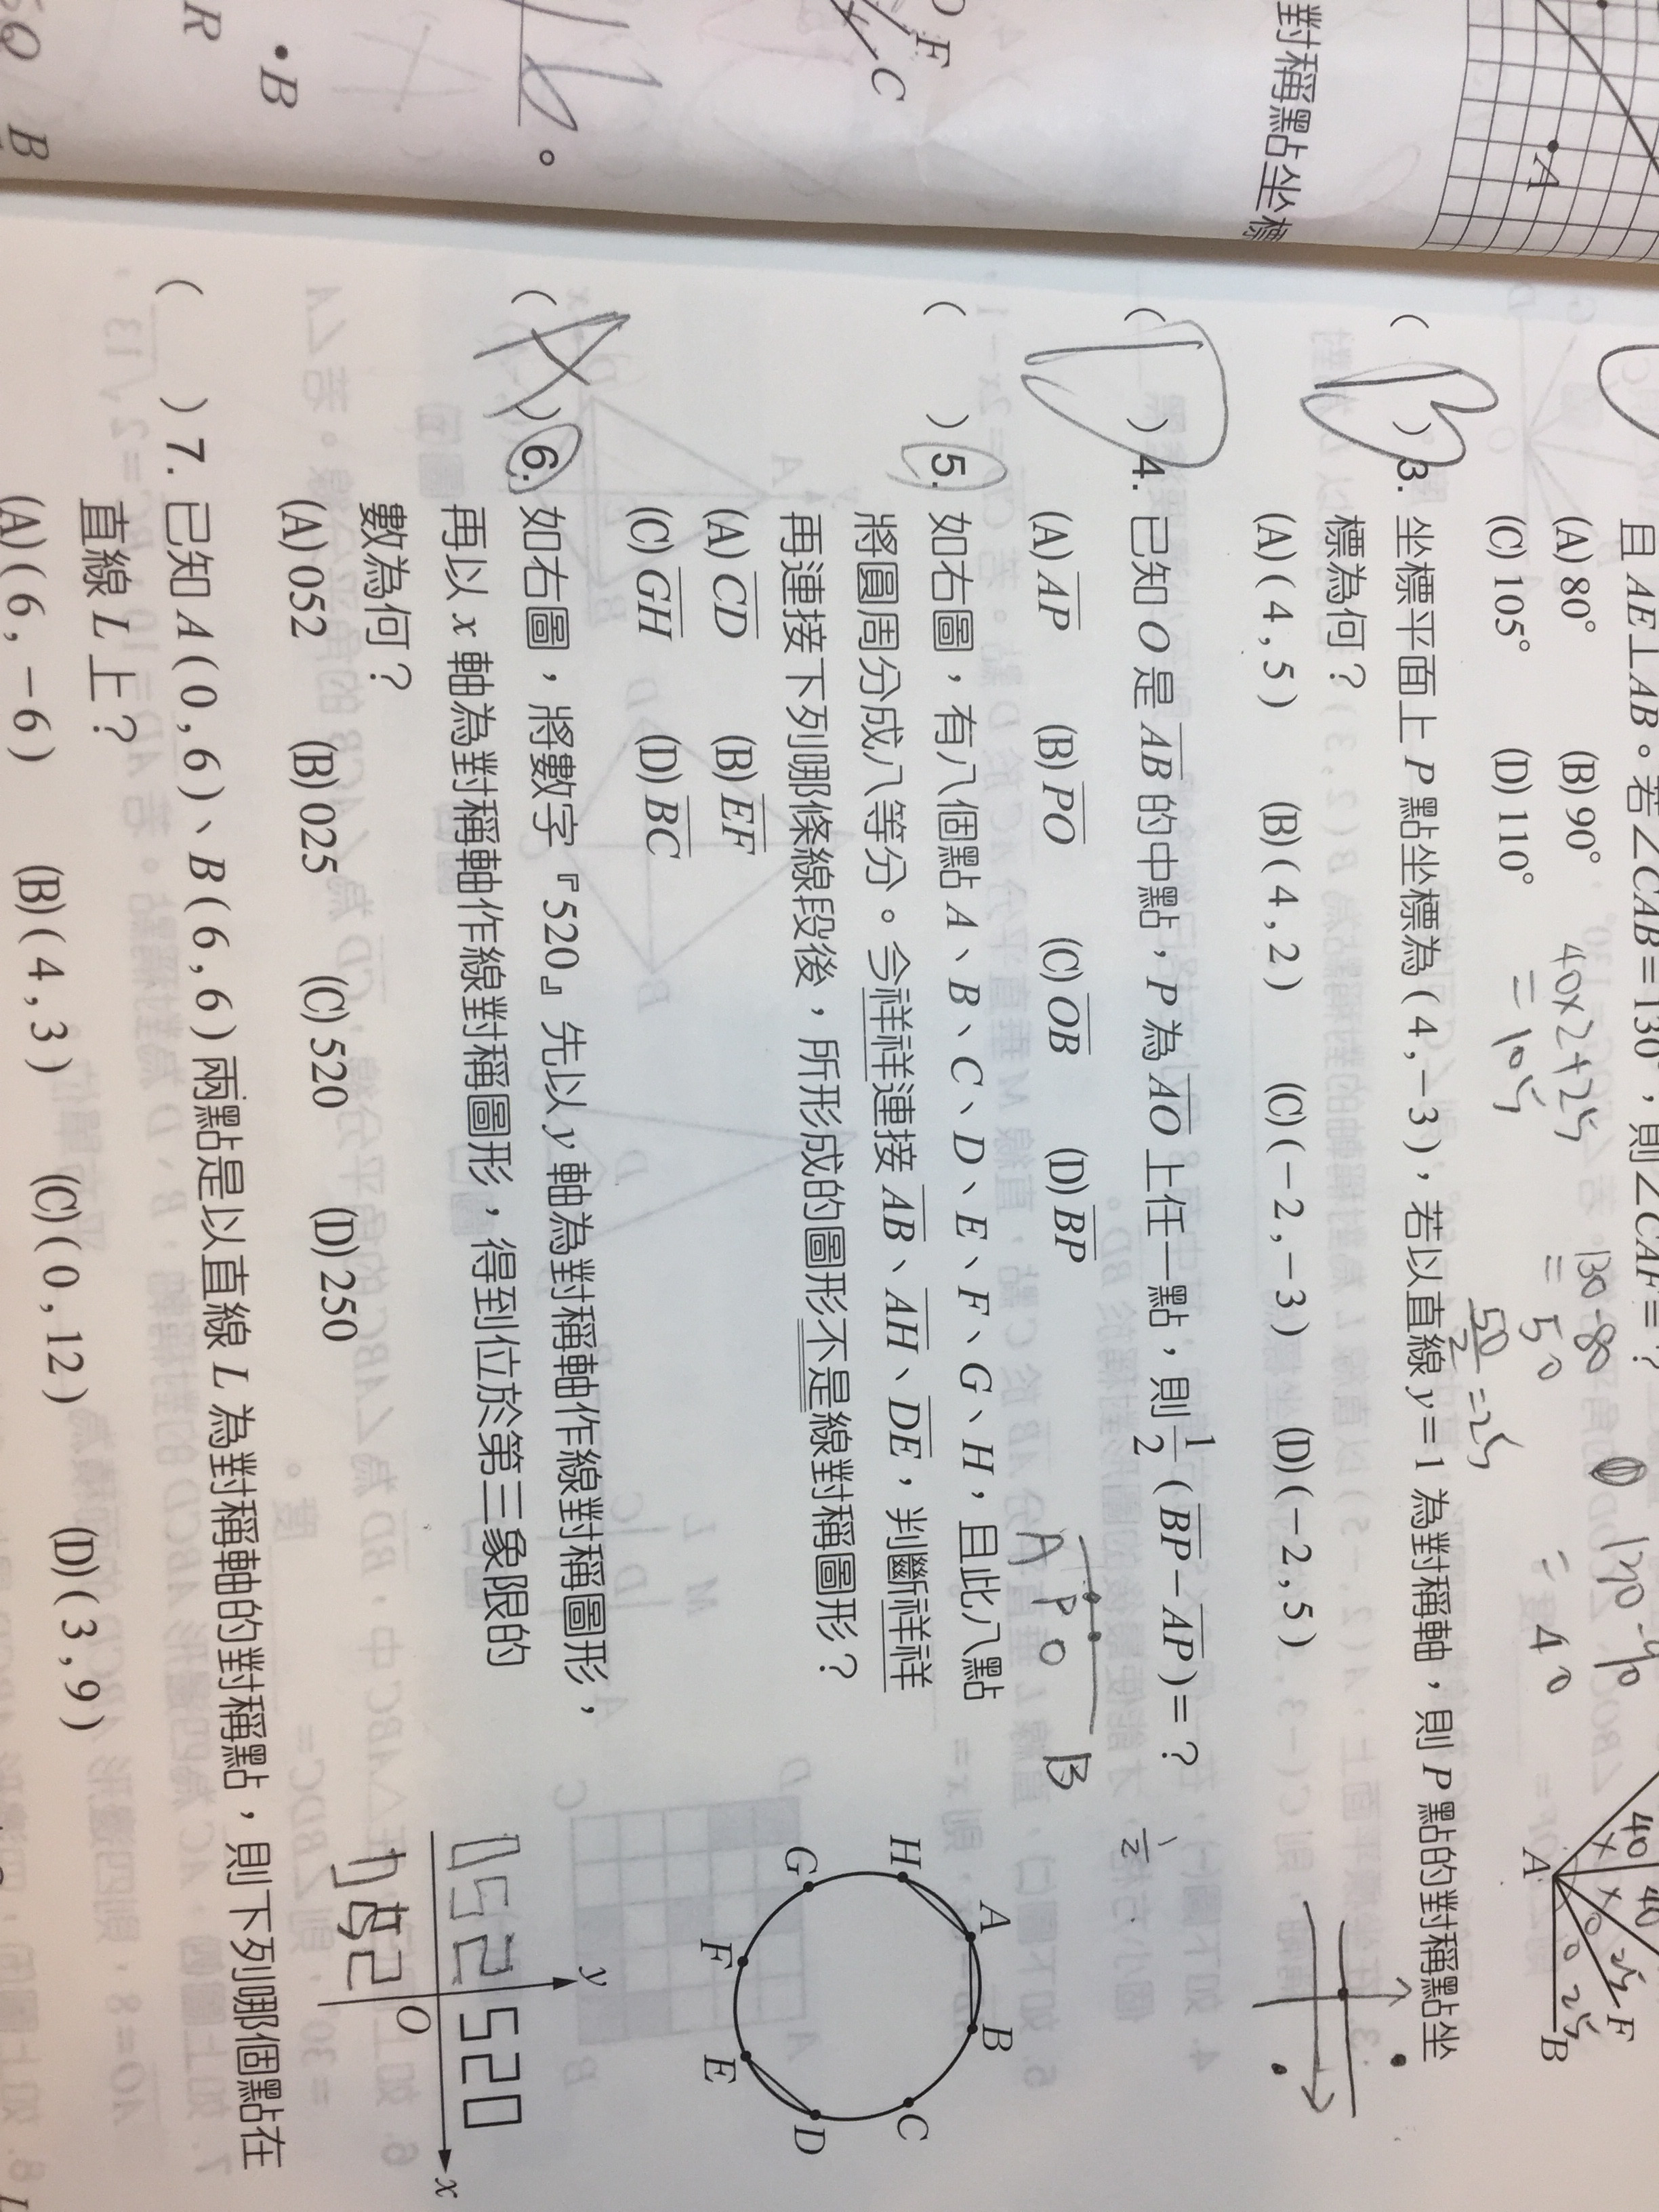 對稱點坐標
A
F
C
B
R
Q
B
且 AE⊥AB。若∠CAB=130°,則∠CAF=?
(A) 80° (B) 90°
(C) 105° (D) 110°
40×2+25
=105
130-80
=50
50/2=25
130-90
=40
40
40
x
x
25
25
F
A
B
( B ) 3. 坐標平面上 P 點坐標為 ( 4 , -3 ),若以直線 y=1 為對稱軸,則 P 點的對稱點坐
標為何?
(A) ( 4 , 5 ) (B) ( 4 , 2 ) (C) ( -2 , -3 ) (D) ( -2 , 5 )
( ) 4. 已知 O 是 AB 的中點,P 為 AO 上任一點,則 1/2 ( BP - AP ) = ?
(A) AP (B) PO (C) OB (D) BP
A P O B
1/2
( ) 5. 如右圖,有八個點 A、B、C、D、E、F、G、H,且此八點
將圓周分成八等分。今祥祥連接 AB、AH、DE,判斷祥祥
再連接下列哪條線段後,所形成的圖形不是線對稱圖形?
(A) CD (B) EF
(C) GH (D) BC
H A B C D E F G
( A ) 6. 如右圖,將數字『520』先以 y 軸為對稱軸作線對稱圖形,
再以 x 軸為對稱軸作線對稱圖形,得到位於第三象限的
數為何?
(A) 052 (B) 025 (C) 520 (D) 250
y
520
O
x
( ) 7. 已知 A ( 0 , 6 )、B ( 6 , 6 ) 兩點是以直線 L 為對稱軸的對稱點,則下列哪個點在
直線 L 上?
(A) ( 6 , -6 ) (B) ( 4 , 3 ) (C) ( 0 , 12 ) (D) ( 3 , 9 )